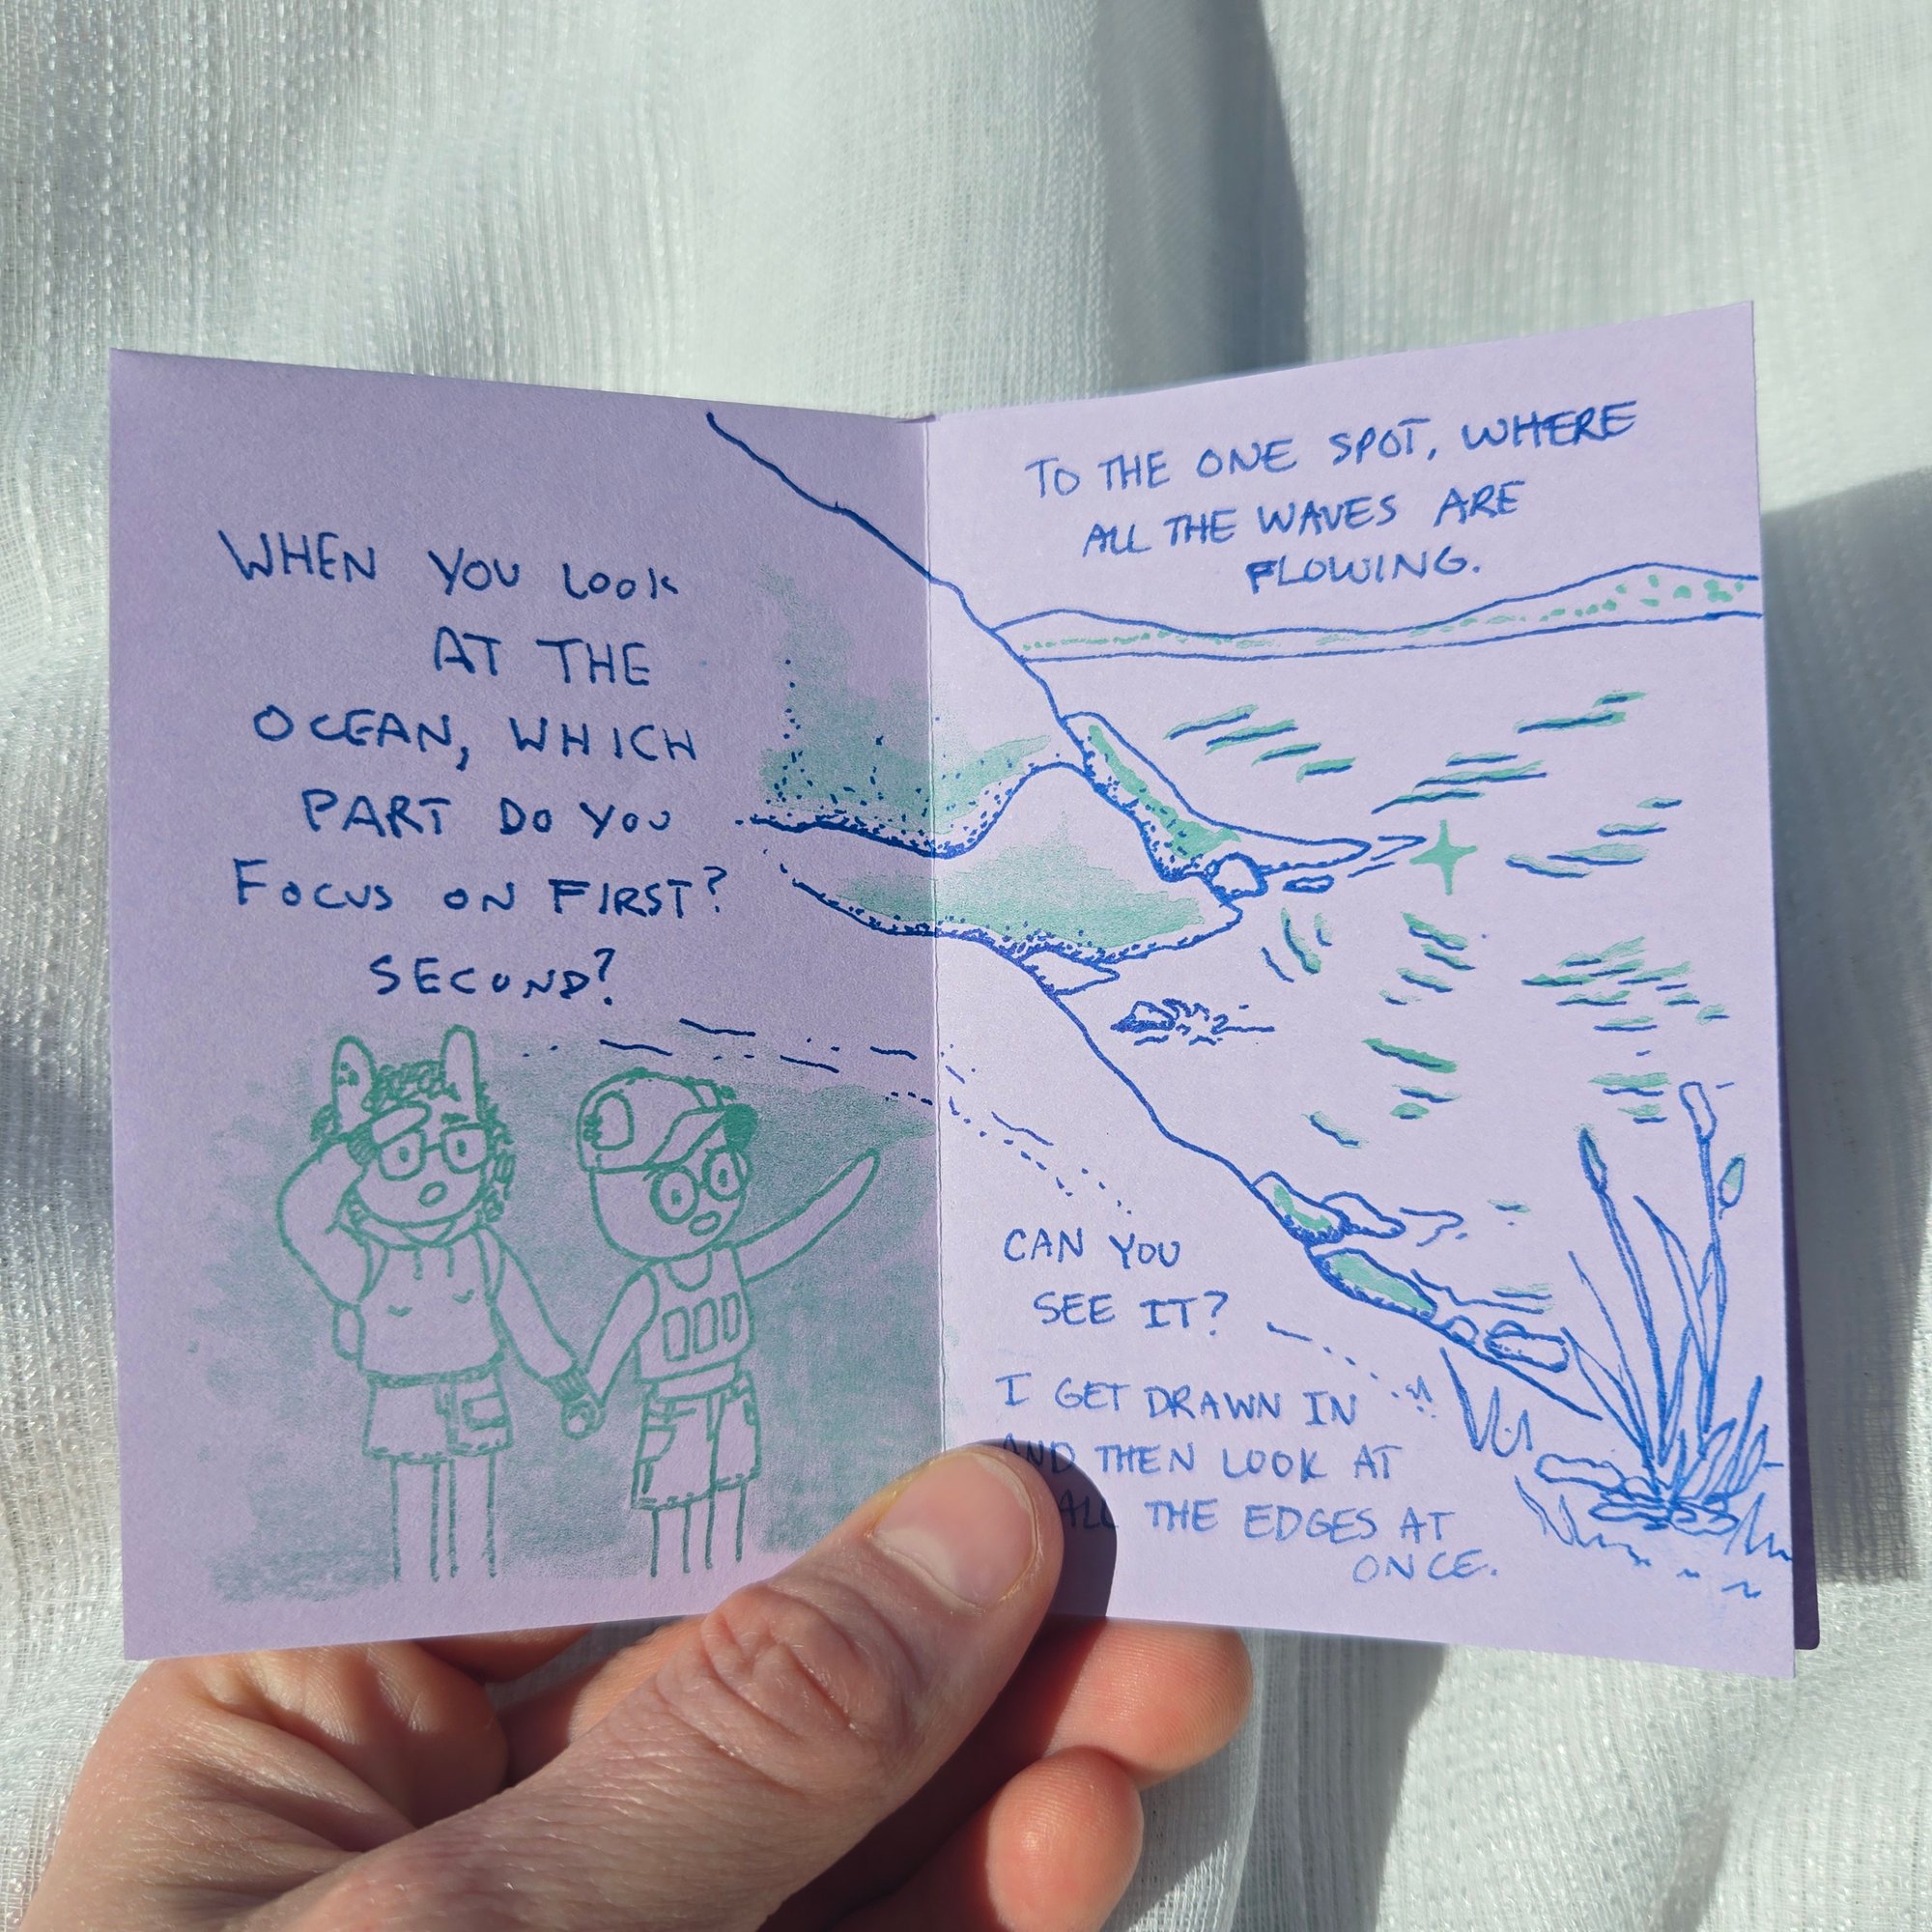 WHEN YOU LOOK
AT THE
OCEAN, WHICH
PART DO YOU
FOCUS ON FIRST?
SECOND?
TO THE ONE SPOT, WHERE
ALL THE WAVES ARE
FLOWING.
CAN YOU
SEE IT?
I GET DRAWN IN
AND THEN LOOK AT
ALL THE EDGES AT
ONCE.